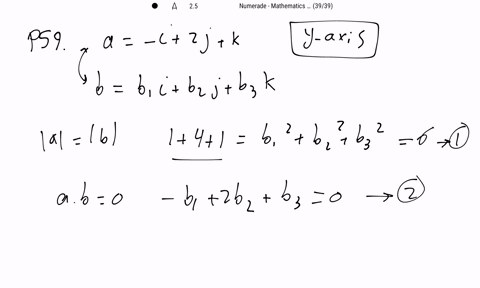 2.5 Numerade - Mathematics ... (39/39)
P59. a = -i + 2j + k y-axis
b = b₁i + b₂j + b₃k
|a| = |b| 1+4+1 = b₁² + b₂² + b₃² = 6 → ①
a.b = 0 -b₁ + 2b₂ + b₃ = 0 → ②